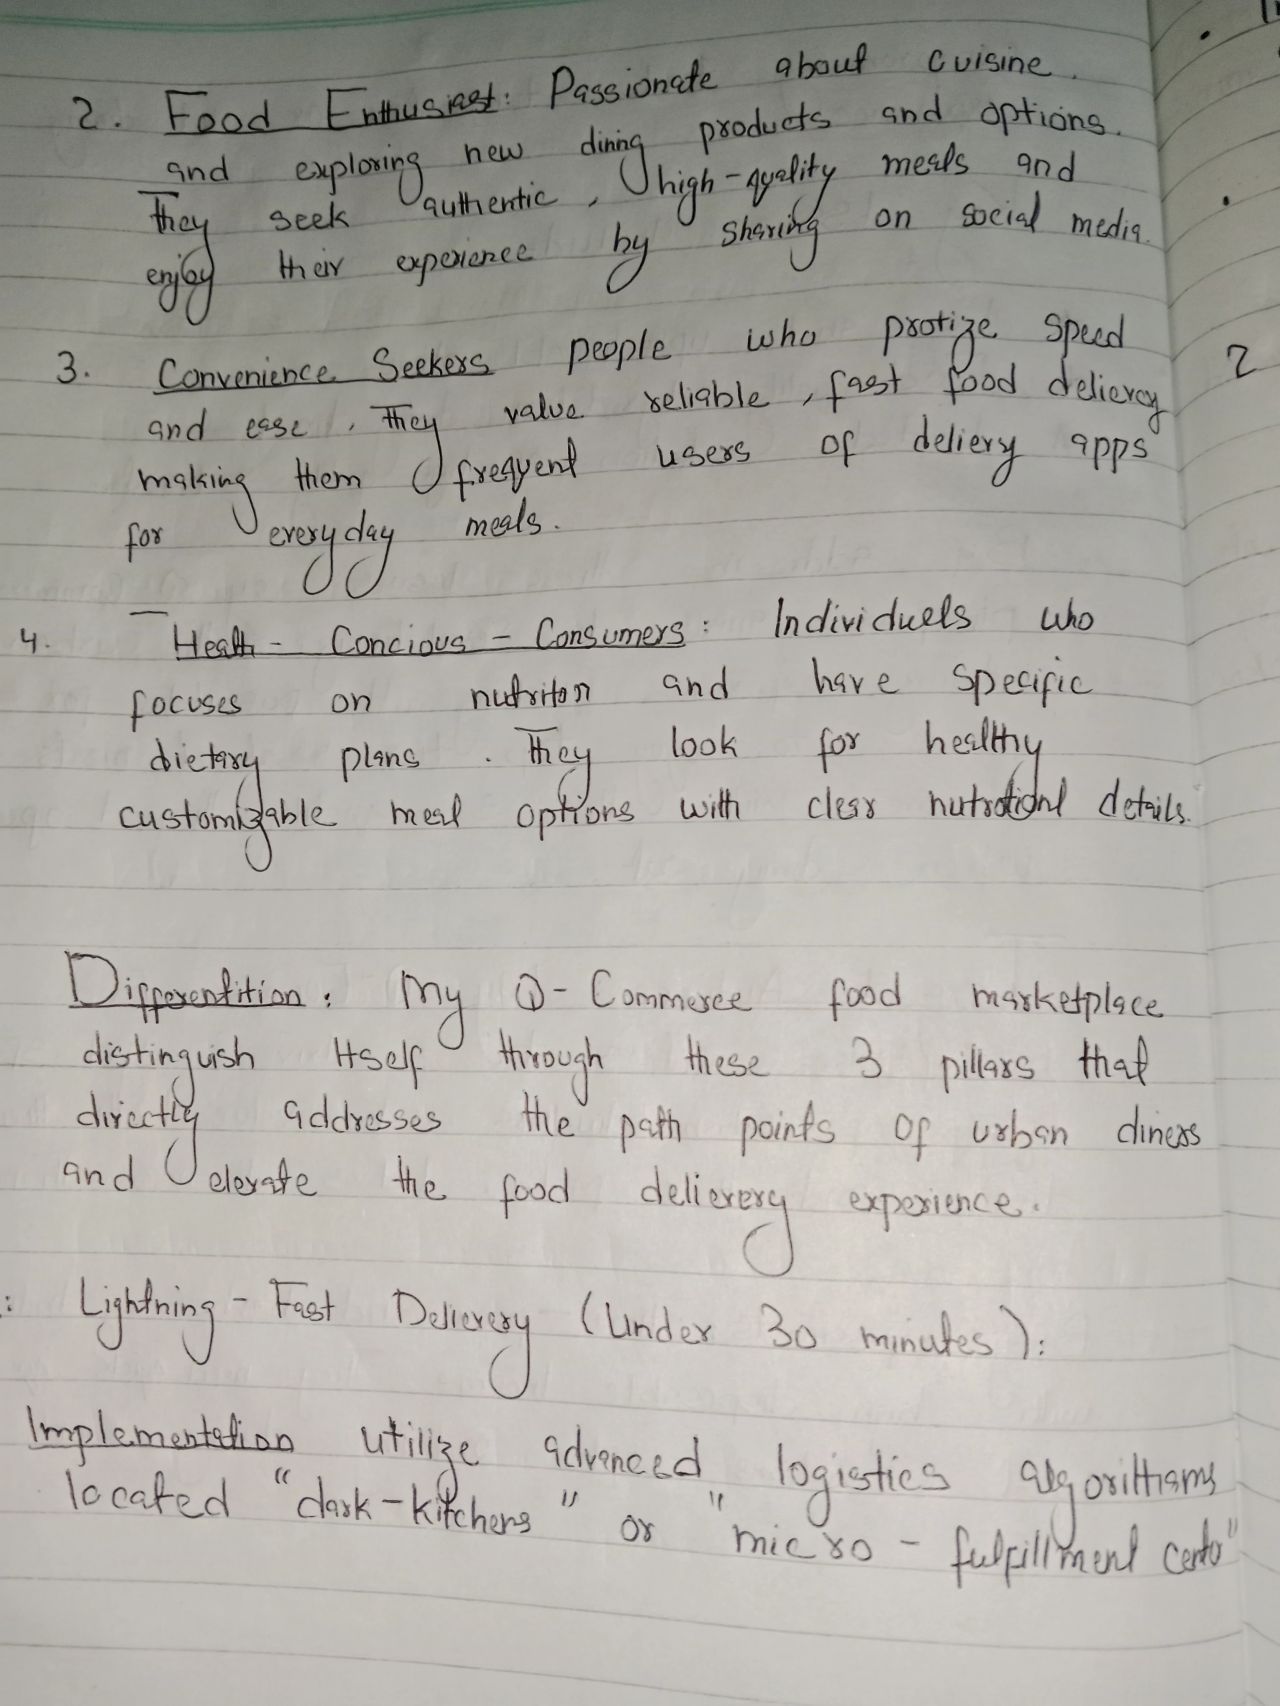 2. Food Enthusiast: Passionate about cuisine.
and exploring new dining products and options.
They seek authentic, high-quality meals and
enjoy their experience by sharing on social media.
3. Convenience Seekers people who protize speed
and ease, They value reliable, fast food delievery
making them frequent users of deliery apps
for everyday meals.
4. Health - Concious - Consumers: Individuels who
focuses on nutriton and have specific
dietary plans. They look for healthy
customizable meal options with clear nutrotionl details.
Differentition: My Q-Commerce food marketplace
distinguish Itself through these 3 pillars that
directly addresses the path points of urban diners
and elevate the food delievery experience.
: Lightning-Fast Delievery (Under 30 minutes):
Implementation utilize advanced logistics algorithams
located "dark-kitchens" or "micro-fulfillment cento"
2